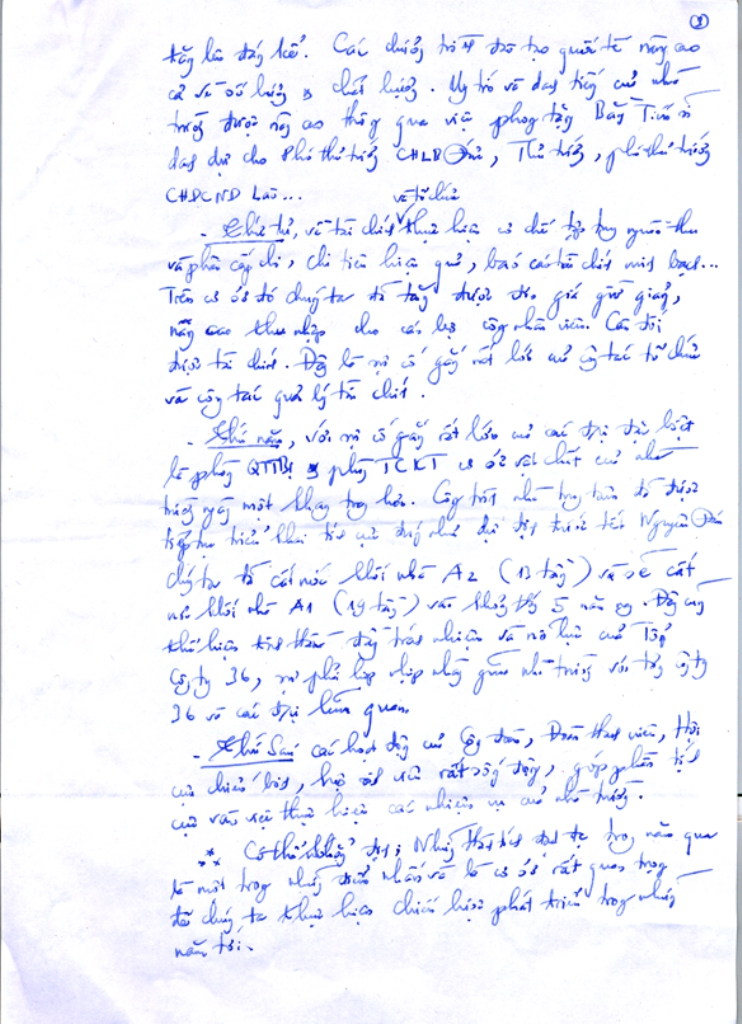 ②
tăng lên đáng kể. Các chương trình đào tạo quốc tế nâng cao
cả về số lượng và chất lượng. Uy tín và danh tiếng của nhà
trường được nâng cao thông qua việc phong tặng Bằng Tiến sĩ
danh dự cho Phó thủ tướng CHLB Đức, Thủ tướng, phó thủ tướng
CHDCND Lào...
về tổ chức
- Thứ tư, về tài chính thực hiện cơ chế tập trung nguồn thu
và phân cấp chi, chi tiêu hiệu quả, báo cáo tài chính minh bạch...
Trên cơ sở đó chúng ta đã tăng được đơn giá giờ giảng,
nâng cao thu nhập cho cán bộ công nhân viên. Cân đối
được tài chính. Đây là sự cố gắng rất lớn của công tác tổ chức
và công tác quản lý tài chính.
- Thứ năm, với sự cố gắng rất lớn của các đơn vị đặc biệt
là phòng QTTB và phòng TCKT cơ sở vật chất của nhà
trường ngày một khang trang hơn. Công trình nhà trung tâm đã được
tiếp tục triển khai tích cực đúng như dự định trước tết Nguyên Đán
chúng ta đã cất nóc khối nhà A2 (13 tầng) và sẽ cất
nóc khối nhà A1 (19 tầng) vào khoảng tháng 5 năm nay. Đây cũng
thể hiện tinh thần đầy trách nhiệm và nỗ lực của Tổng
Công ty 36, sự phối hợp nhịp nhàng giữa nhà trường với tổng công ty
36 và các đơn vị liên quan.
- Thứ Sáu các hoạt động của Công đoàn, Đoàn thanh niên, Hội
cựu chiến binh, hội sinh viên rất sôi động, góp phần tích
cực vào việc thực hiện các nhiệm vụ của nhà trường.
*** Có thể khẳng định: Những thành tích đạt được trong năm qua
là một trong những điểm nhấn và là cơ sở rất quan trọng
để chúng ta thực hiện chiến lược phát triển trong những
năm tới.-